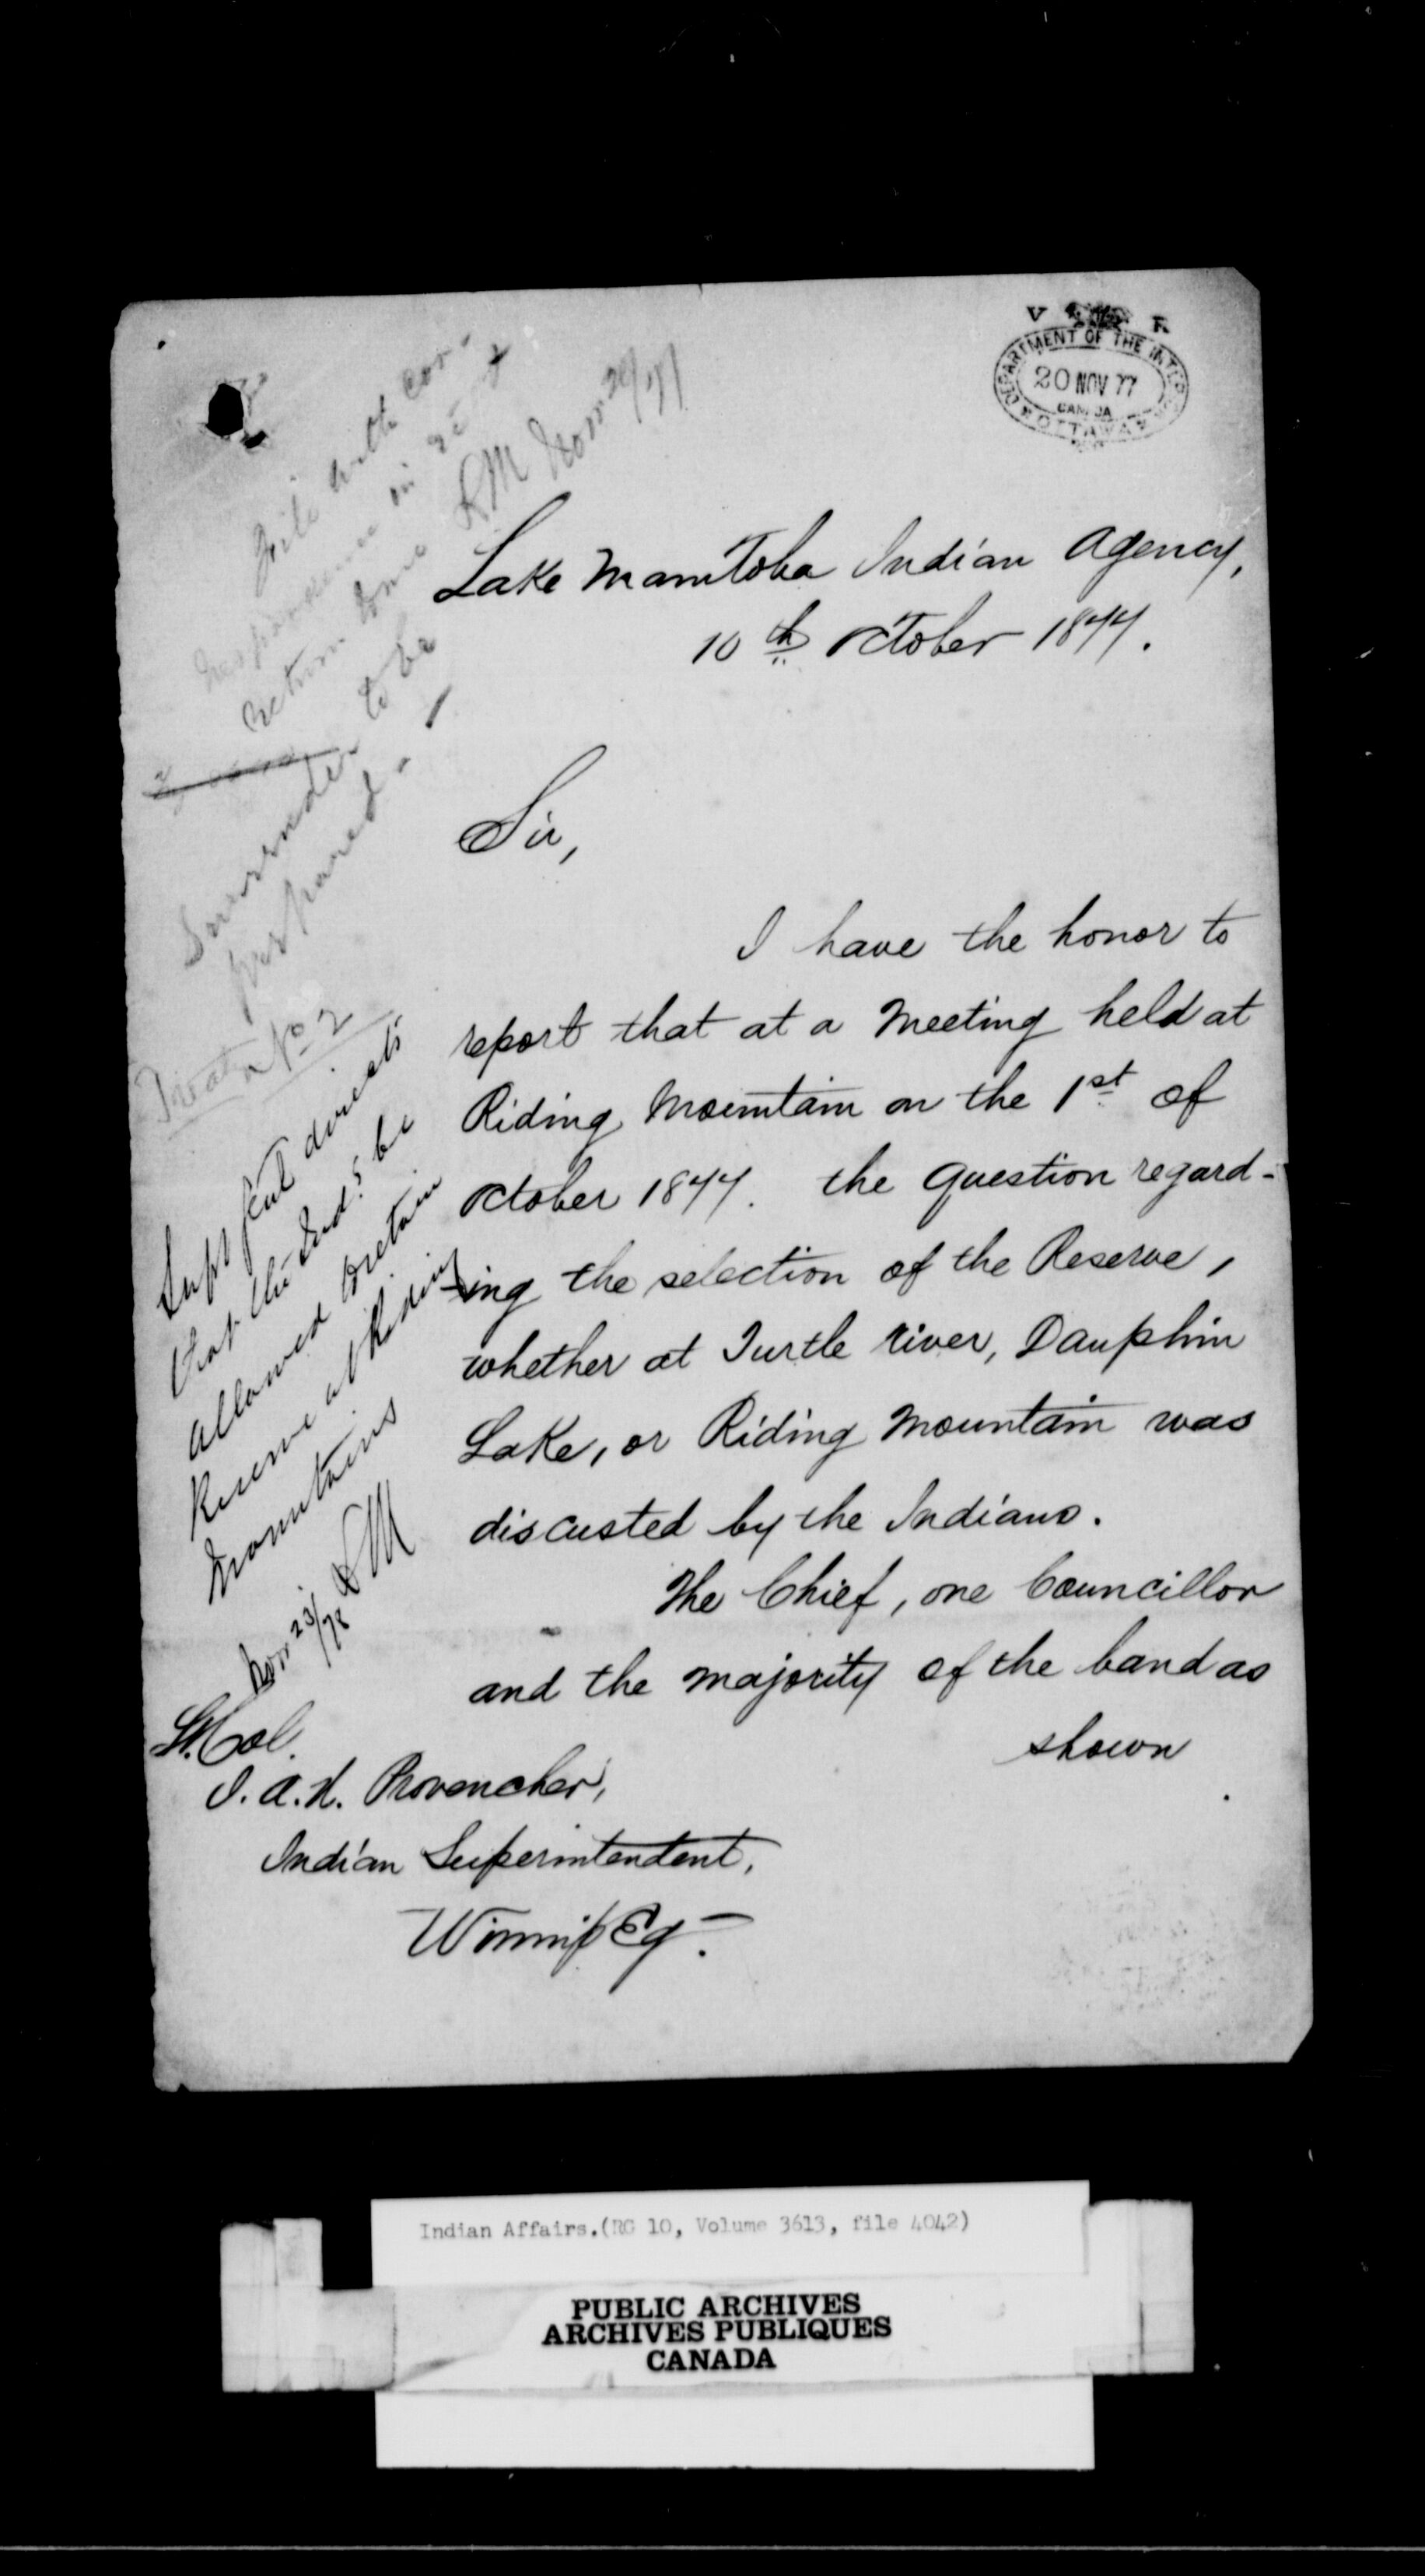 V R
DEPARTMENT OF THE INTERIOR
20 NOV 77
CANADA
OTTAWA
File with cor-
respondence in
return some
LM Nov 20/77
Surrender to be
prepared -
Treaty No 2
Supt Genl directs
that the Inds be
allowed to retain
Reserve at Riding
Mountains
LM
Nov 23/78
Lake Manitoba Indian Agency,
10th October 1877.
Sir,
I have the honor to
report that at a Meeting held at
Riding Mountain on the 1st of
October 1877. the question regard-
-ing the selection of the Reserve,
whether at Turtle river, Dauphin
Lake, or Riding Mountain was
discusted by the Indians.
The Chief, one Councillor
and the majority of the band as
shown
Lt. Col.
J. A. N. Provencher,
Indian Superintendent,
Winnipeg.
Indian Affairs.(RG 10, Volume 3613, file 4042)
PUBLIC ARCHIVES
ARCHIVES PUBLIQUES
CANADA